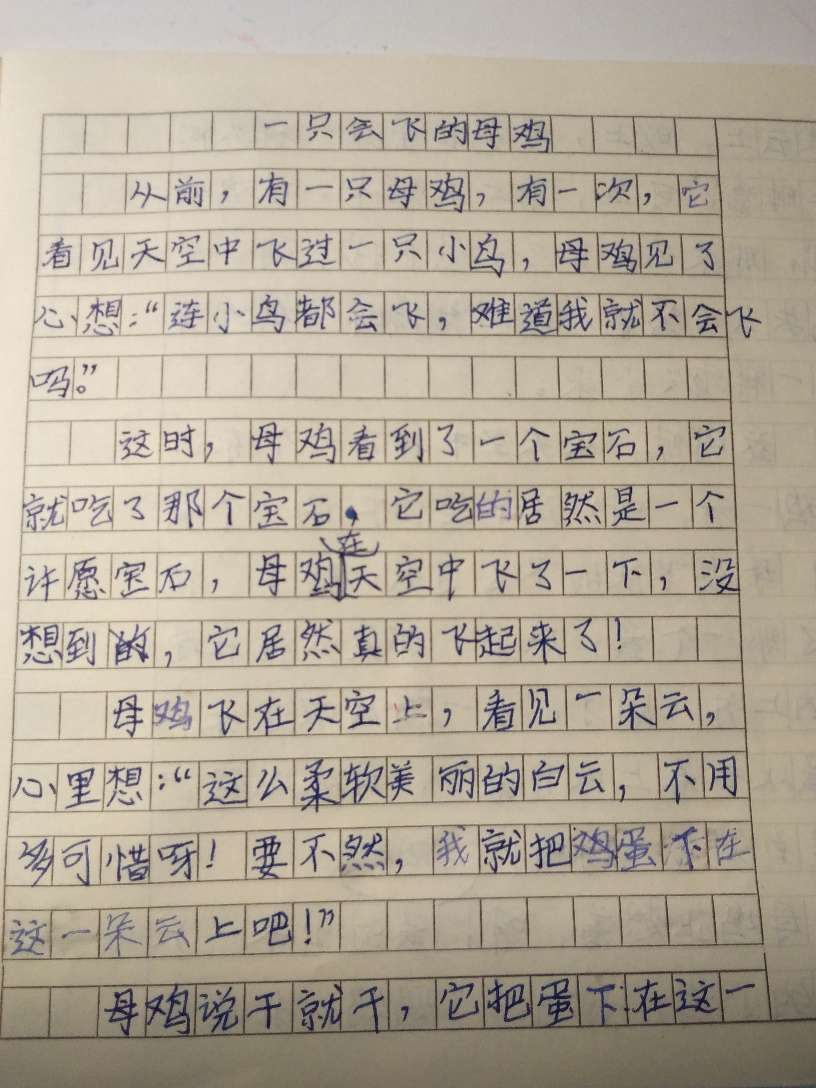 一只会飞的母鸡
从前，有一只母鸡，有一次，它
看见天空中飞过一只小鸟，母鸡见了
心想：“连小鸟都会飞，难道我就不会飞
吗。”
这时，母鸡看到了一个宝石，它
就吃了那个宝石，它吃的居然是一个
许愿宝石，母鸡在天空中飞了一下，没
想到，它居然真的飞起来了！
母鸡飞在天空上，看见一朵云，
心里想：“这么柔软美丽的白云，不用
多可惜呀！要不然，我就把鸡蛋下在
这一朵云上吧！”
母鸡说干就干，它把蛋下在这一